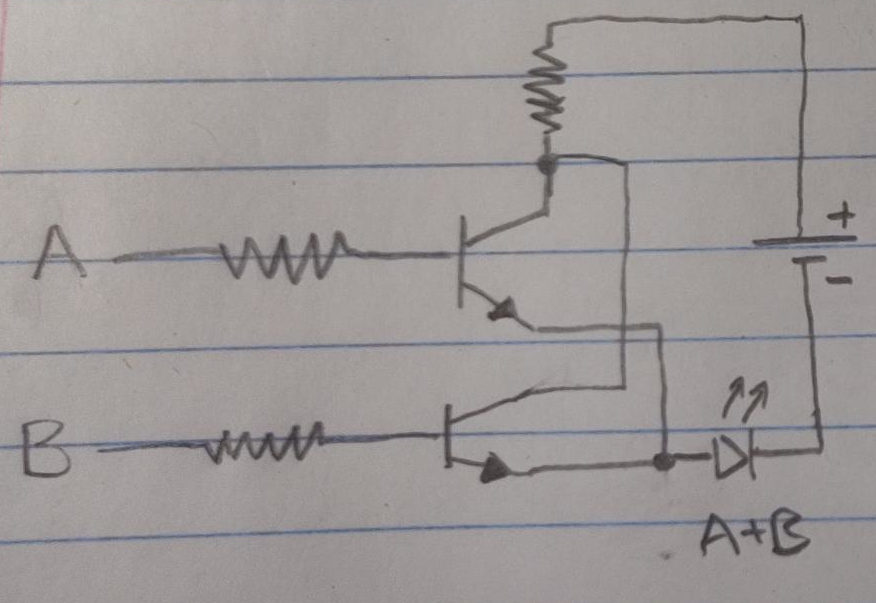 +
A
-
B
A+B